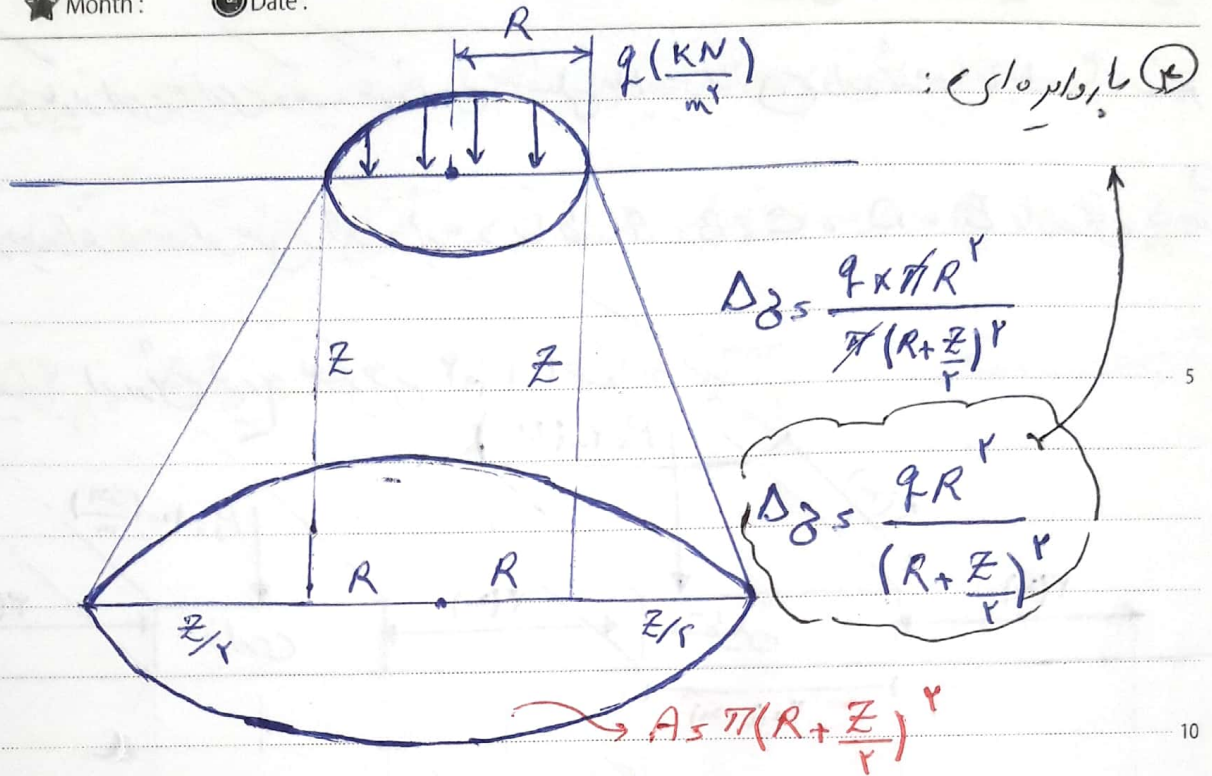 Month :
Date :
R
q (KN/m^۲)
④ بار دایره‌ای :
Δz = q×πR^۲ / π(R+Z/۲)^۲
Z
Z
5
Δz = qR^۲ / (R+Z/۲)^۲
R
R
Z/۲
Z/۲
A = π(R+Z/۲)^۲
10